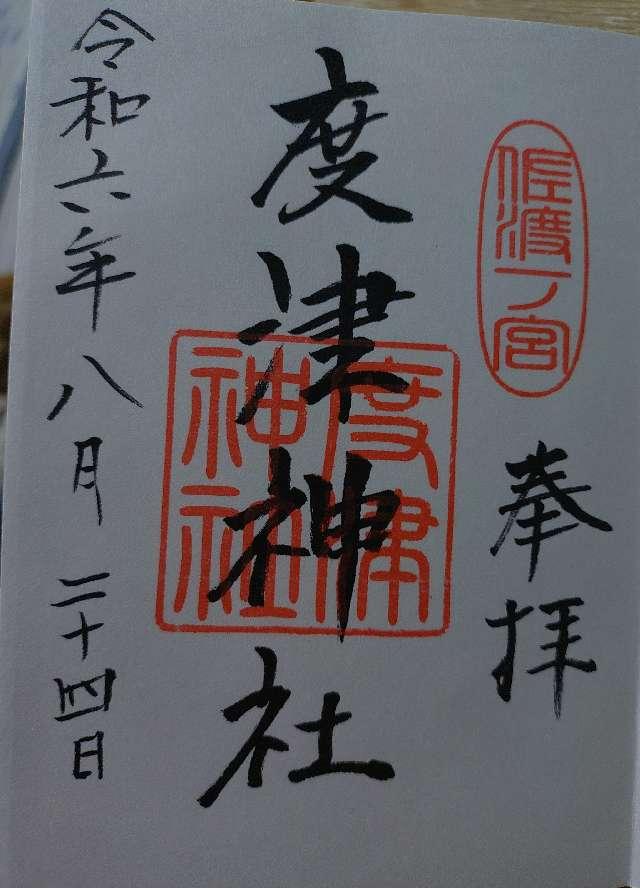 佐渡一ノ宮
奉拝
度津神社
度津
神社
令和六年八月二十四日